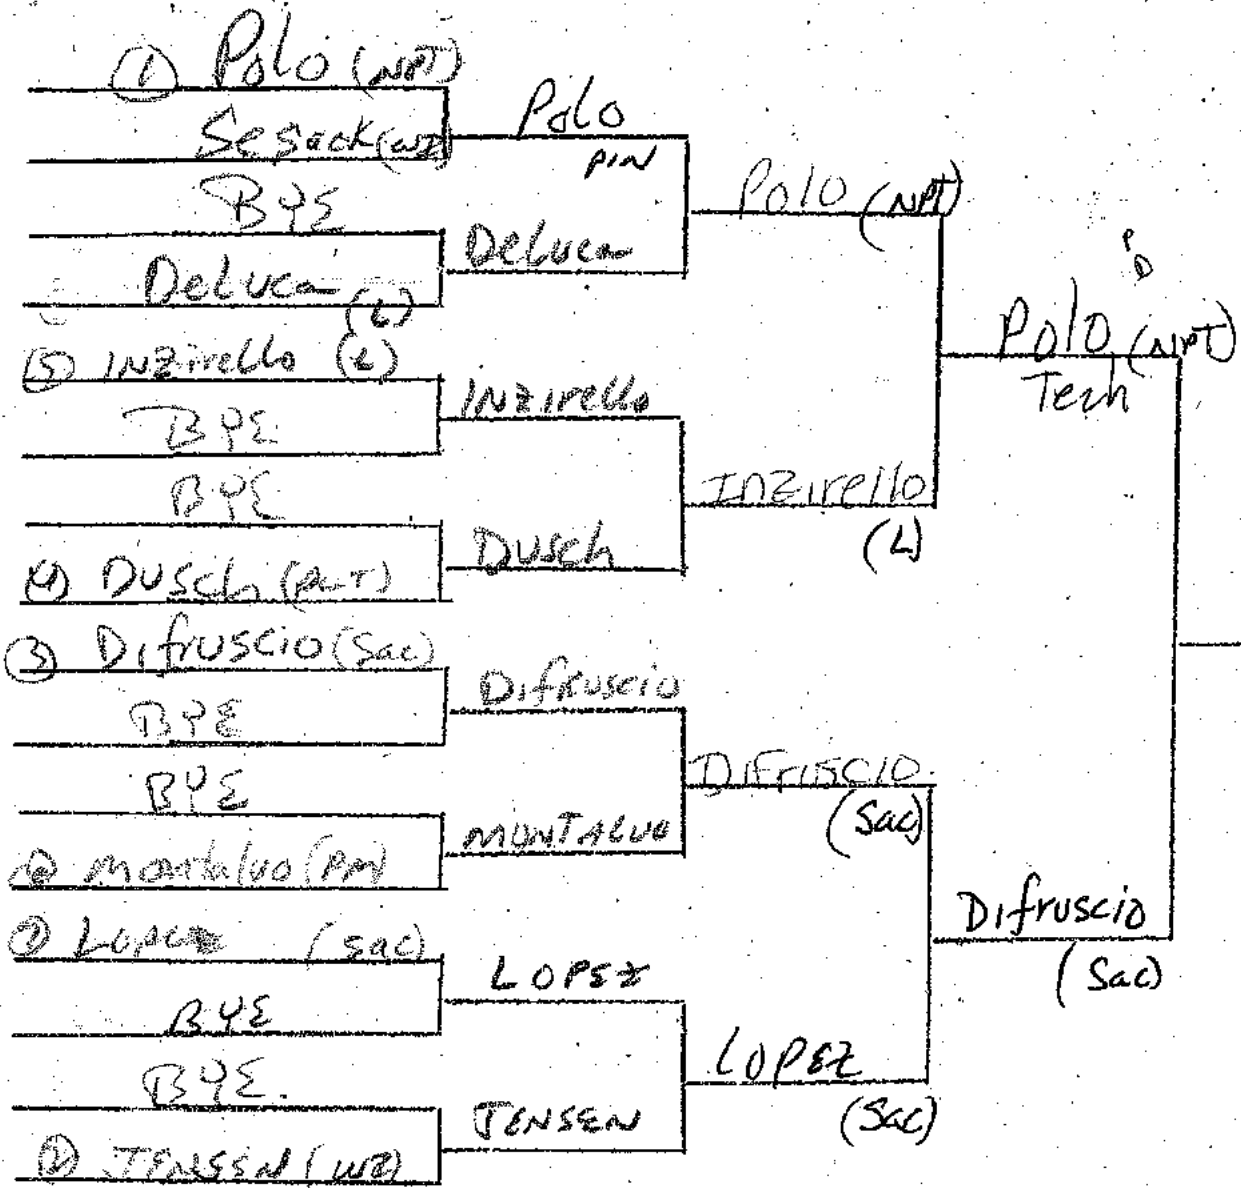 ① Polo (NPT)
Sesack (WZ)
BYE
DeLuca (L)
⑤ INZirello (L)
BYE
BYE
④ DUSCh
③ Difruscio (Sac)
BYE
BYE
montalvo (PM)
LOPEZ (Sac)
BYE
BYE
② JENSEN (WZ)
Polo
PIN
DeLuca
INZIrello
DUSCh
Difruscio
MONTALVO
LOPEZ
JENSEN
Polo (NPT)
INZIrello
(L)
DIFrusCIO
(Sac)
LOPEZ
(Sac)
Polo (NPT)
Tech
Difruscio
(Sac)